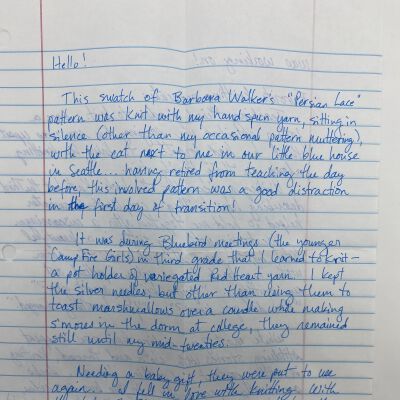 Hello!
This swatch of Barbara Walker's "Persian Lace"
pattern was knit with my handspun yarn, sitting in
silence (other than my occasional pattern muttering),
with the cat next to me in our little blue house
in Seattle... having retired from teaching the day
before, this involved pattern was a good distraction
in the first day of transition!
It was during Bluebird meetings (the younger
Camp Fire Girls) in third grade that I learned to knit –
a pot holder of variegated Red Heart yarn. I kept
the silver needles, but other than using them to
toast marshmallows over a candle while making
s'mores in the dorm at college, they remained
still until my mid-twenties.
Needing a baby gift, they were put to use
again... I fell in love with knitting. With